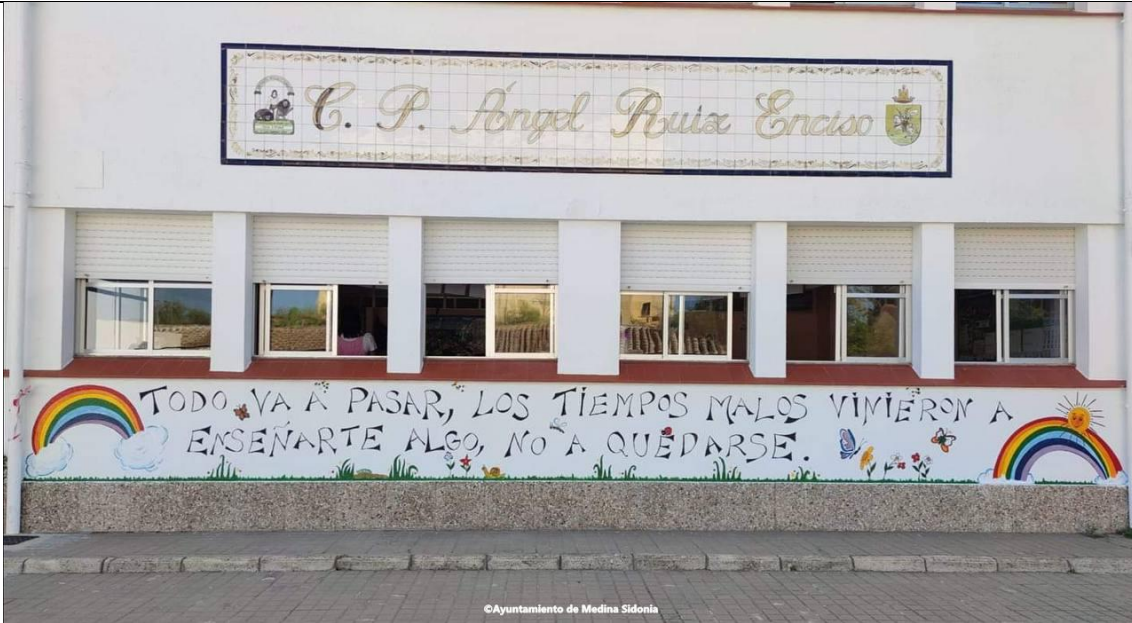 C. P. Ángel Ruiz Enciso
TODO VA A PASAR, LOS TIEMPOS MALOS VINIERON A
ENSEÑARTE ALGO, NO A QUEDARSE.
©Ayuntamiento de Medina Sidonia